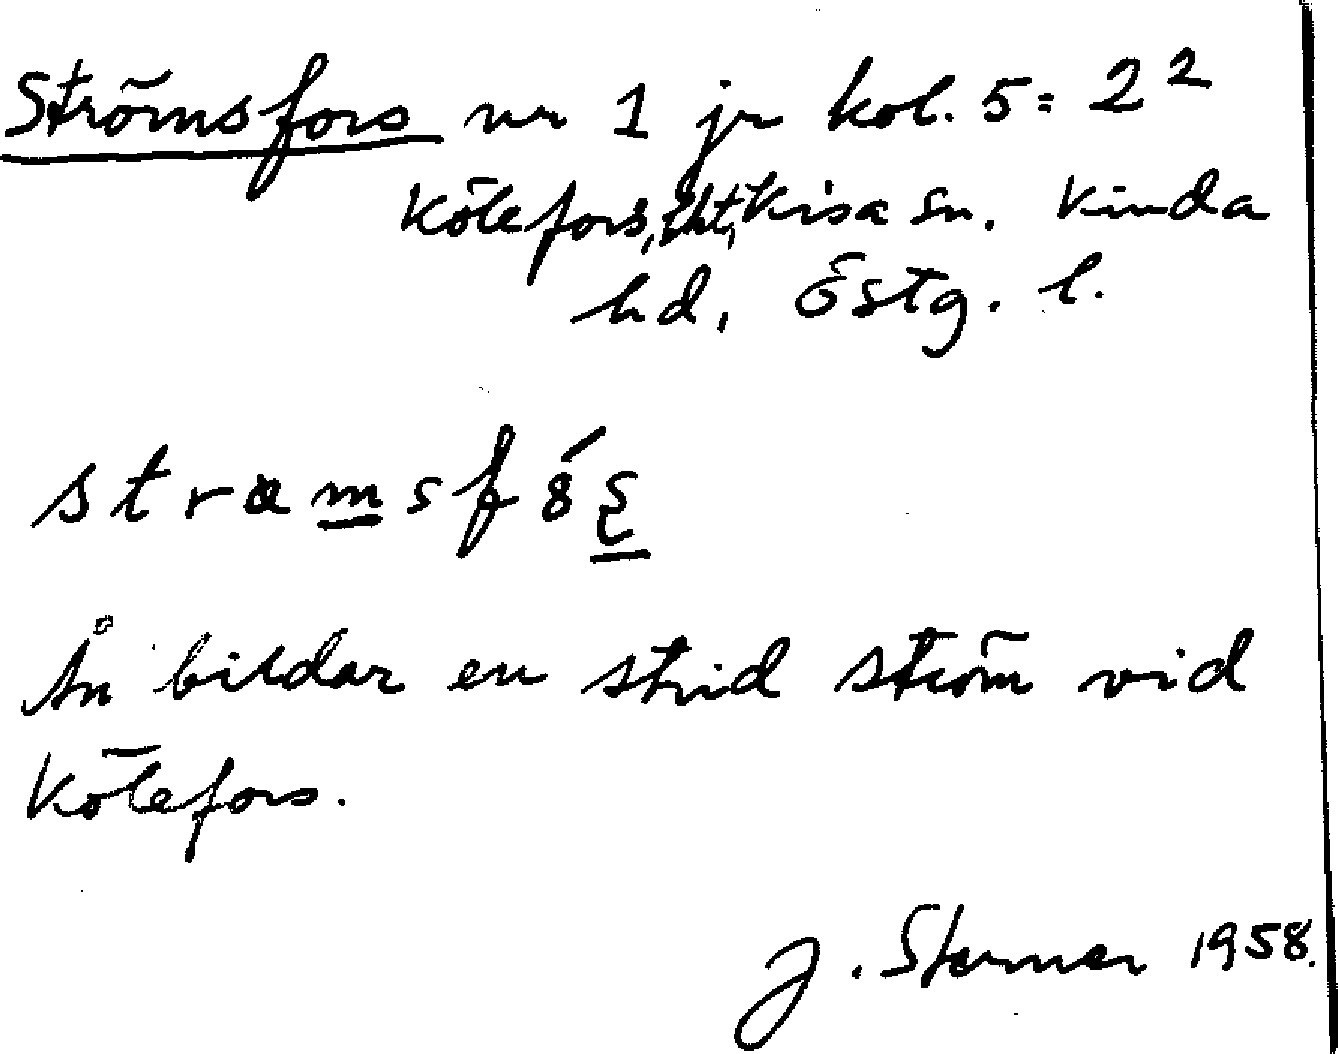 Strömsfors nr 1 jr kol. 5 = 2²
Kölefors, Kisa sn. Kinda
hd, Östg. l.
Ån bildar en strid ström vid
Kölefors.
J. Sterner 1958.